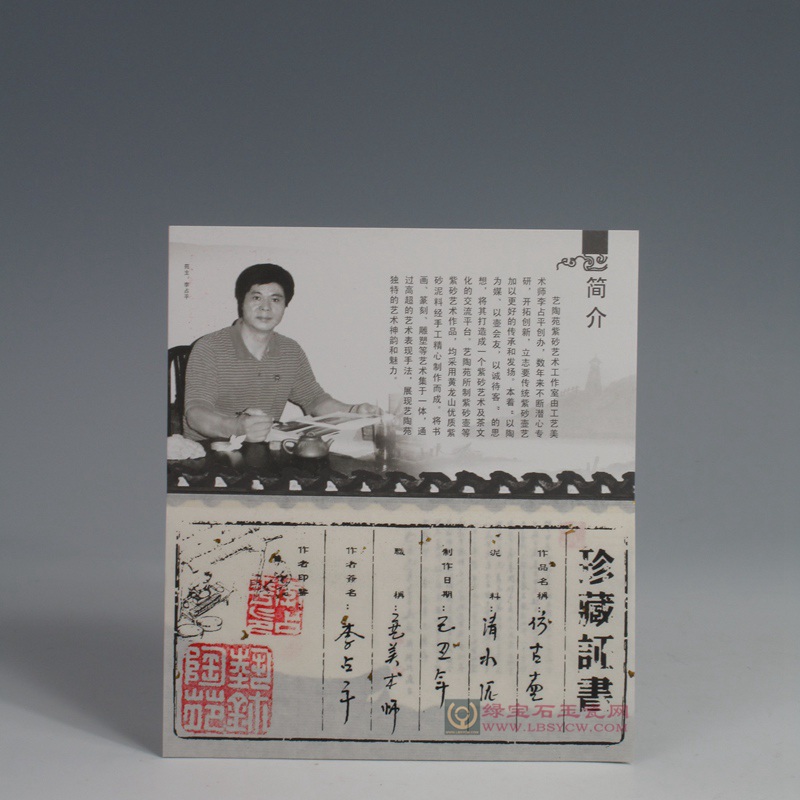 简介
艺陶苑紫砂艺术工作室由工艺美
术师李占平创办，数年来不断潜心专
研，开拓创新，立志要传统紫砂壶艺
加以更好的传承和发扬。本着“以陶
为媒，以壶会友，以诚待客”的思
想，将其打造成一个紫砂艺术及茶文
化的交流平台。艺陶苑所制紫砂壶等
紫砂艺术作品，均采用黄龙山优质紫
砂泥料经手工精心制作而成，将书
画、篆刻、雕塑等艺术集于一体，通
过高超的艺术表现手法，展现艺陶苑
独特的艺术神韵和魅力。
珍藏証書
作品名稱：仿古壶
泥料：清水泥
制作日期：己丑年
職稱：美术师
作者簽名：李占平
作者印鑒
绿宝石玉瓷网
WWW.LBSYCW.COM